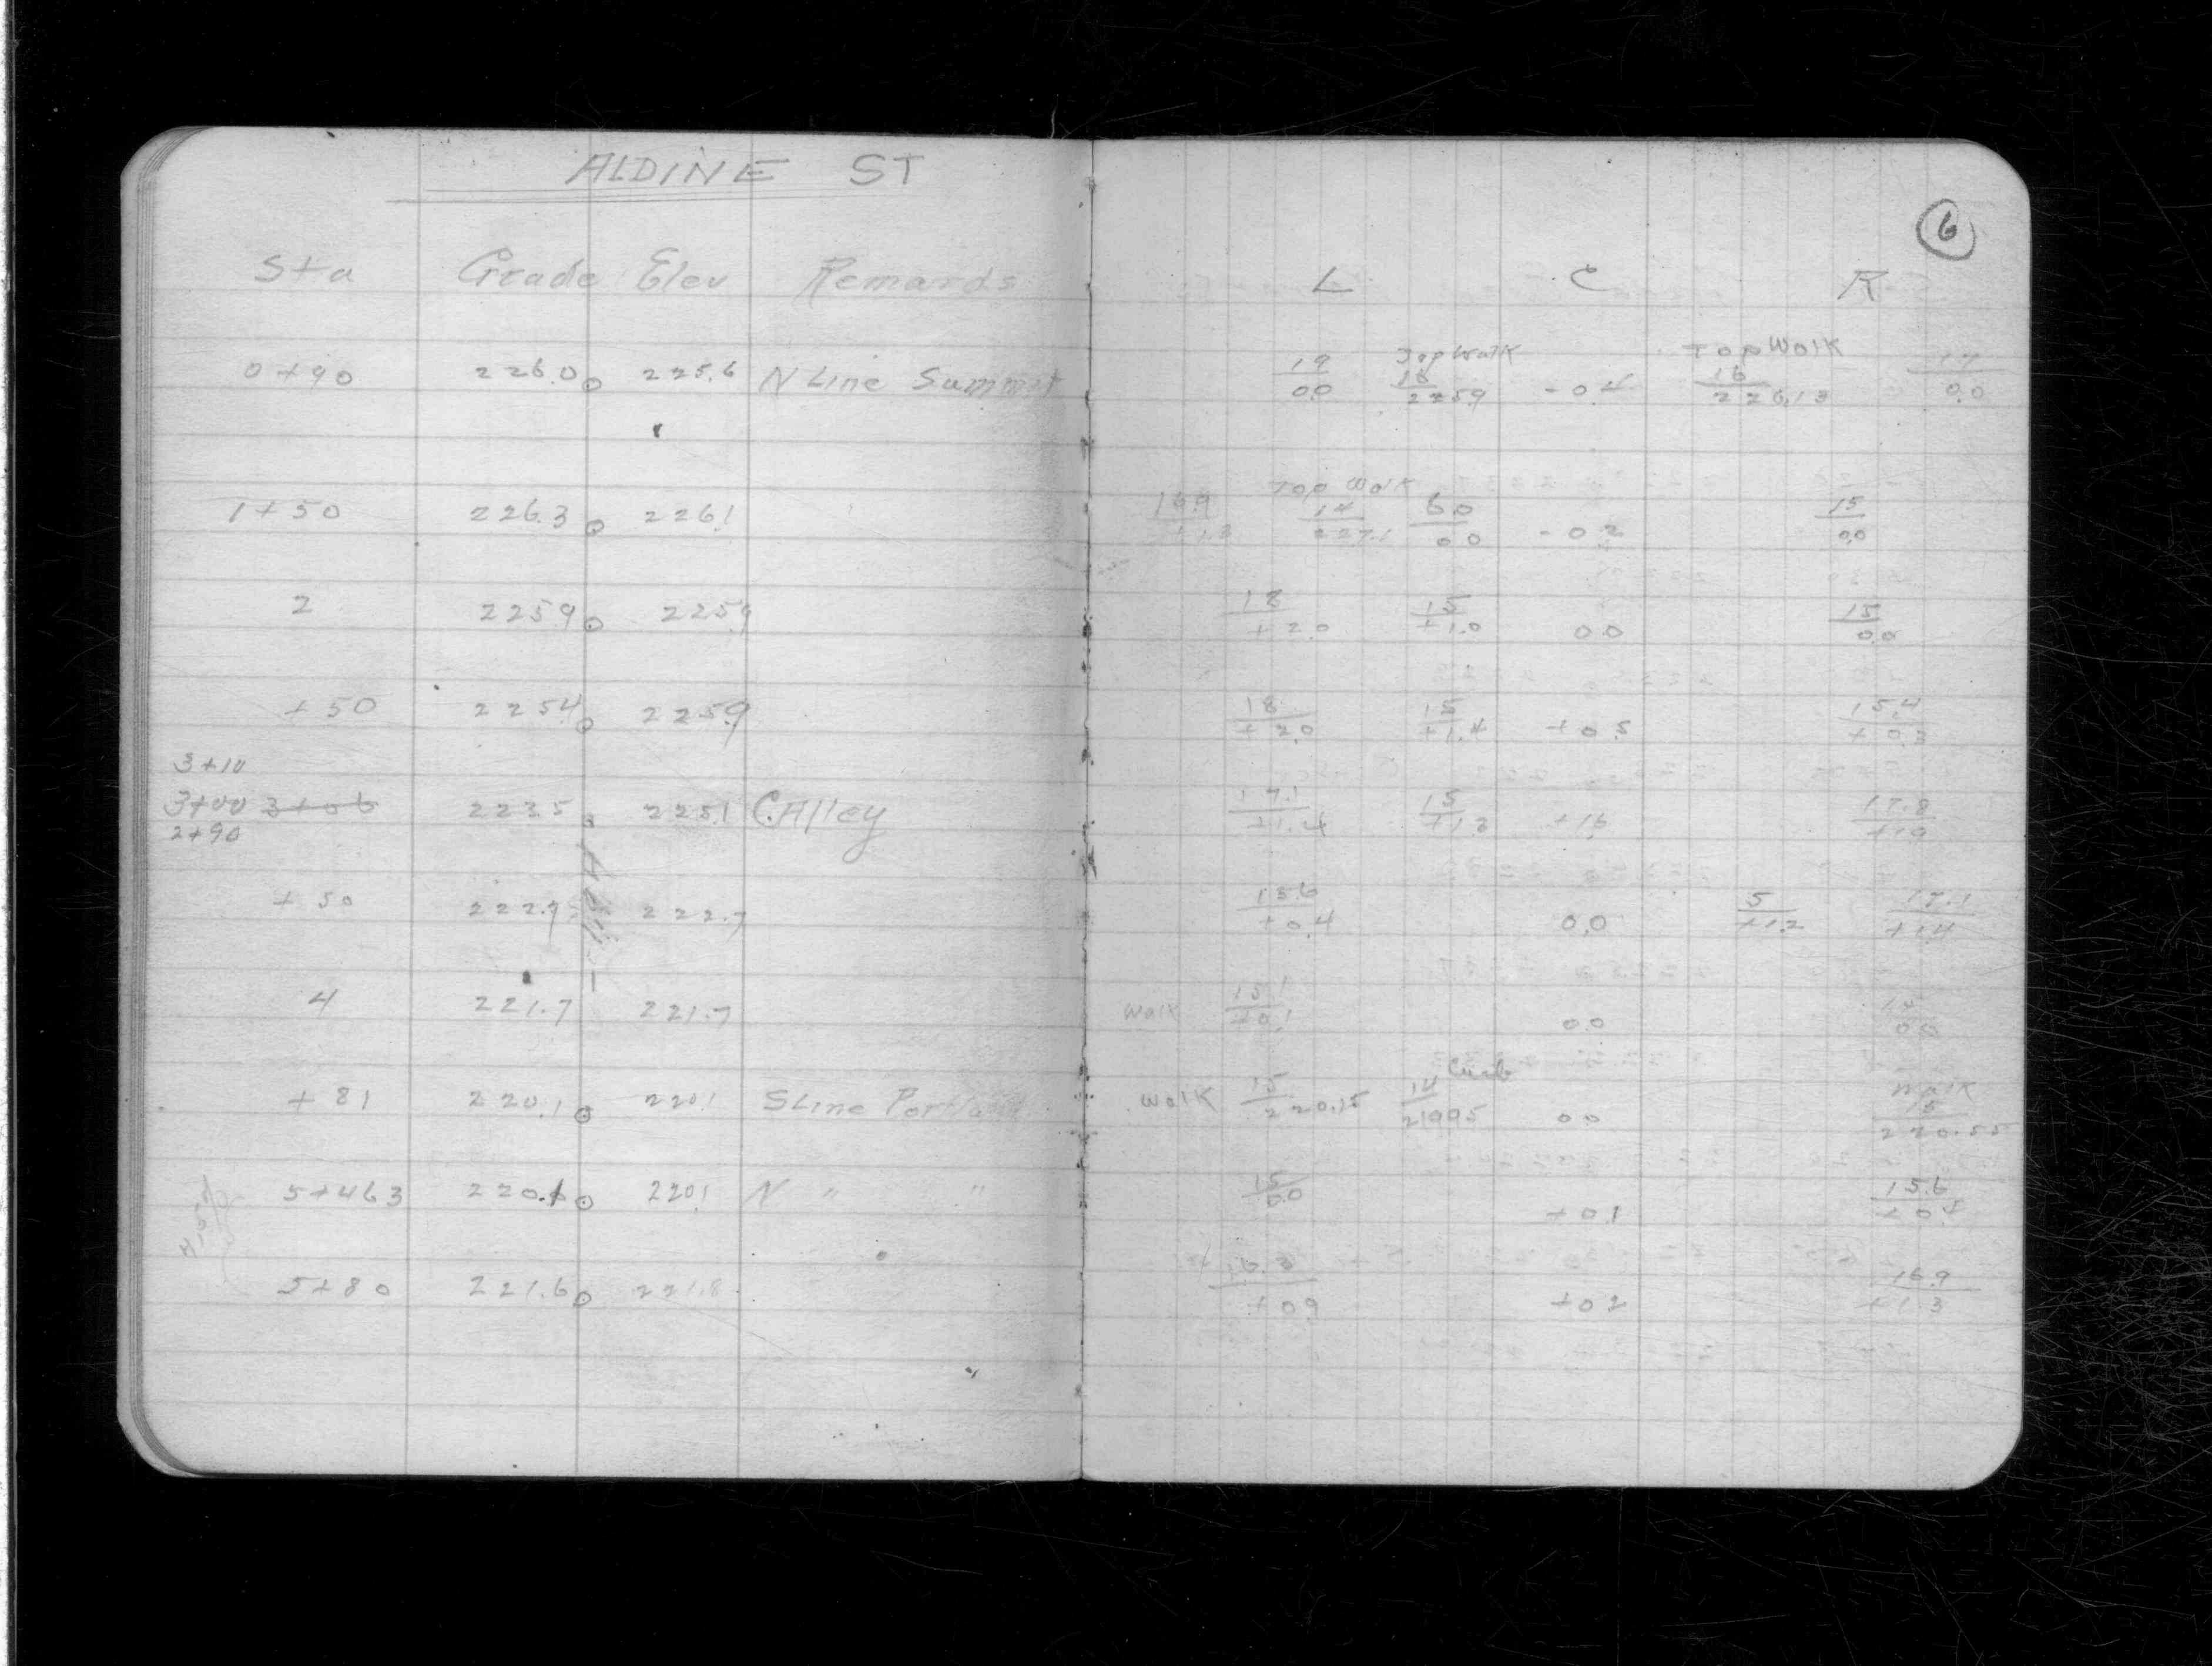 ALDINE ST
6
Sta Grade Elev Remarks L C R
Top Walk Top Walk
0+90 226.0 225.6 N Line Summit 19/0.0 18/225.9 -0.4 16/226.13 17/0.0
Top Walk
1+50 226.3 226.1 16.9/+1.3 14/227.1 6.0/0.0 -0.2 15/0.0
2 225.9 225.9 18/+2.0 15/+1.0 0.0 15/0.0
+50 225.4 225.9 18/+2.0 15/+1.4 +0.5 15.4/+0.3
3+10
3+00 3+06 223.5 225.1 C.Alley 17.1/+1.4 15/+1.3 +1.6 17.8/+1.9
2+90
+50 222.7 222.7 15.6/+0.4 0.0 5/+1.2 17.1/+1.4
4 221.7 221.7 Walk 15.1/+0.1 0.0 15/0.0
Curb Walk
+81 220.1 220.1 S Line Portland Walk 15/220.15 14/219.95 0.0 15/220.55
5+46.3 220.1 220.1 N " " 15/0.0 +0.1 15.6/+0.5
5+80 221.6 221.8 16.3/+0.9 +0.2 16.9/+1.3